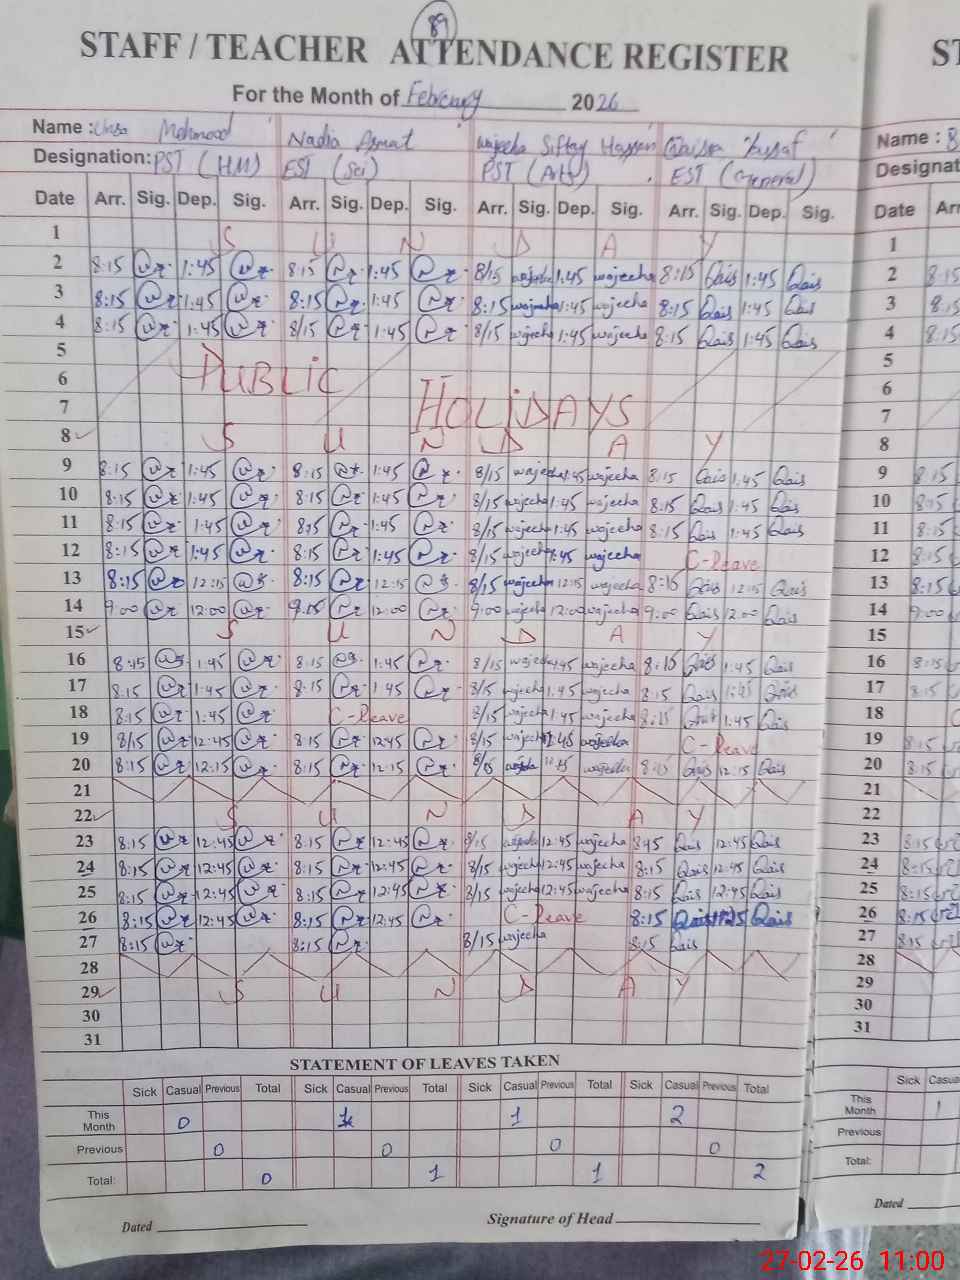 89
STAFF / TEACHER ATTENDANCE REGISTER
For the Month of February 2026
Name : Mehmood Nadia Asmat wajeecha Hassan
Designation: PST (HM) EST (Sci) PST (Arts) EST (General)
Date Arr. Sig. Dep. Sig. Arr. Sig. Dep. Sig. Arr. Sig. Dep. Sig. Arr. Sig. Dep. Sig.
1 S U N D A Y
2 8:15 1:45 8:15 1:45 8/15 wajeecha 1:45 wajeecha 8:15 Qais 1:45 Qais
3 8:15 1:45 8:15 1:45 8:15 wajeecha 1:45 wajeecha 8:15 Qais 1:45 Qais
4 8:15 1:45 8/15 1:45 8/15 wajeecha 1:45 wajeecha 8:15 Qais 1:45 Qais
5
6 PUBLIC
7 HOLIDAYS
8 S U N D A Y
9 8:15 1:45 8:15 1:45 8/15 wajeecha 1:45 wajeecha 8:15 Qais 1:45 Qais
10 8:15 1:45 8:15 1:45 8/15 wajeecha 1:45 wajeecha 8:15 Qais 1:45 Qais
11 8:15 1:45 8:15 1:45 8/15 wajeecha 1:45 wajeecha 8:15 Qais 1:45 Qais
12 8:15 1:45 8:15 1:45 8/15 wajeecha 1:45 wajeecha C-Leave
13 8:15 12:15 8:15 12:15 8/15 wajeecha 12:15 wajeecha 8:15 Qais 12:15 Qais
14 9:00 12:00 9:15 12:00 9:00 wajeecha 12:00 wajeecha 9:00 Qais 12:00 Qais
15 S U N D A Y
16 8:15 1:45 8:15 1:45 8/15 wajeecha 1:45 wajeecha 8:15 Qais 1:45 Qais
17 8:15 1:45 8:15 1:45 8/15 wajeecha 1:45 wajeecha 8:15 Qais 1:45 Qais
18 8:15 1:45 C-Leave 8/15 wajeecha 1:45 wajeecha 8:15 Qais 1:45 Qais
19 8/15 12:45 8:15 12:45 8/15 wajeecha 12:45 wajeecha C-Leave
20 8:15 12:15 8:15 12:15 8/15 wajeecha 12:15 wajeecha 8:15 Qais 12:15 Qais
21
22 S U N D A Y
23 8:15 12:45 8:15 12:45 8/15 wajeecha 12:45 wajeecha 8:45 Qais 12:45 Qais
24 8:15 12:45 8:15 12:45 8/15 wajeecha 12:45 wajeecha 8:15 Qais 12:45 Qais
25 8:15 12:45 8:15 12:45 8/15 wajeecha 12:45 wajeecha 8:15 Qais 12:45 Qais
26 8:15 12:45 8:15 12:45 C-Leave 8:15 Qais Qais
27 8:15 8:15 8/15 wajeecha 8:15 Qais
28
29 S U N D A Y
30
31
STATEMENT OF LEAVES TAKEN
Sick Casual Previous Total Sick Casual Previous Total Sick Casual Previous Total Sick Casual Previous Total
This Month 0 1 1 2
Previous 0 0 0 0
Total: 0 1 1 2
Dated Signature of Head
ST
Name :
Designat
Date Arr
1
2 8:15
3 8:15
4 8:15
5
6
7
8
9 8:15
10 8:15
11 8:15
12 8:15
13 8:15
14 9:00
15
16 8:15
17 8:15
18
19 8:15
20 8:15
21
22
23 8:15
24 8:15
25 8:15
26 8:15
27 8:15
28
29
30
31
Sick Casua
This Month 1
Previous
Total:
Dated
27-02-26 11:00